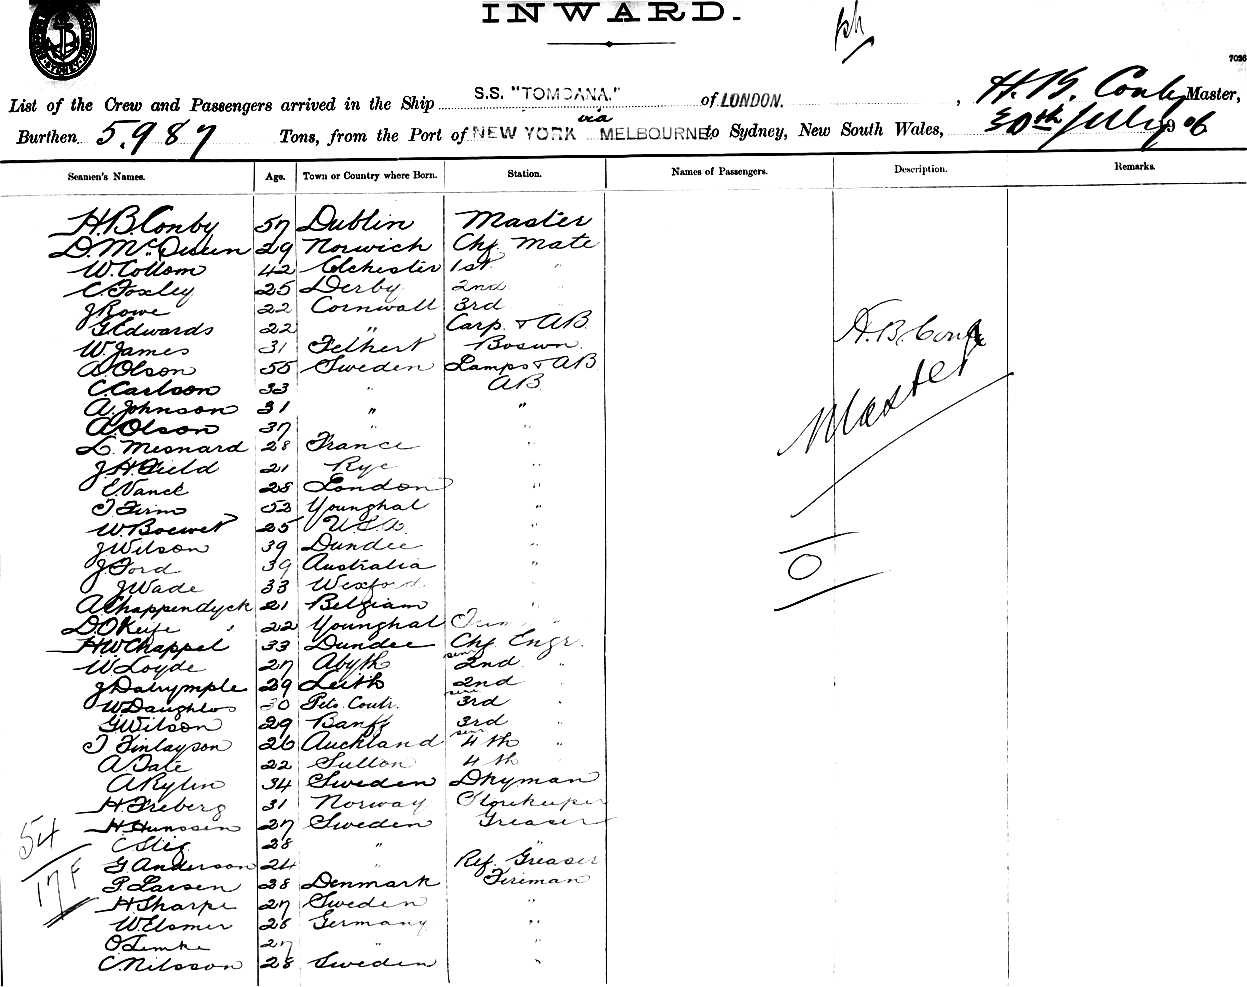 INWARD.
7026
S.S. "TOMOANA."
List of the Crew and Passengers arrived in the Ship of LONDON. , H. B. Conby Master,
via
Burthen 5,987 Tons, from the Port of NEW YORK MELBOURNE to Sydney, New South Wales, 30th July 1906
Seamen's Names. Age. Town or Country where Born. Station. Names of Passengers. Description. Remarks.
H. B. Conby 57 Dublin Master
D. McQueen 29 Norwich Chf Mate
W. Collom 42 Colchester 1st "
C Foxley 25 Derby 2nd "
J Rowe 22 Cornwall 3rd
G Edwards 22 " Carp. & AB
W. James 31 Boswn
A. Olson 55 Sweden Lamps & AB
C. Carlson 33 " AB
A. Johnson 31 " "
A. Olson 37 " "
L. Mesnard 28 France "
J. H. Field 21 Rye "
E Vance 28 London "
T Firm 53 Younghal "
W. 25 U.S.A. "
J Wilson 39 Dundee "
J Ford 39 Australia "
J Wade 33 Wexford "
A Chappendyck 21 Belgium "
D. O'Keefe 22 Younghal
H W Chappel 33 Dundee Chf Engr.
W. Loyde 27 senr 2nd "
J Dalrymple 29 Leith 2nd "
W 30 senr 3rd "
G Wilson 29 Banff 3rd "
T Finlayson 26 Auckland senr 4th "
A Tate 22 Sutton 4th
A Rylin 34 Sweden Dkyman
H. Freberg 31 Norway Storekeeper
H. Hunssen 27 Sweden Greaser
C Stig 28 " "
G Anderson 24 " Ref. Greaser
P. Larsen 38 Denmark Fireman
H. Sharpe 27 Sweden "
W. Elsmer 28 Germany "
O Lemke 27 " "
C. Nilsson 28 Sweden "
H. B. Conby
Master
O
54
17 F